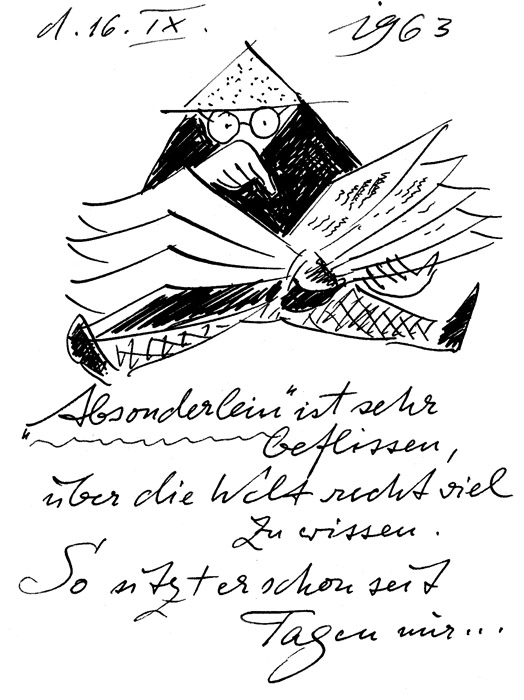 d. 16. IX. 1963
„Absonderlein" ist sehr
beflissen,
über die Welt recht viel
zu wissen.
So sitzt er schon seit
Tagen nur...